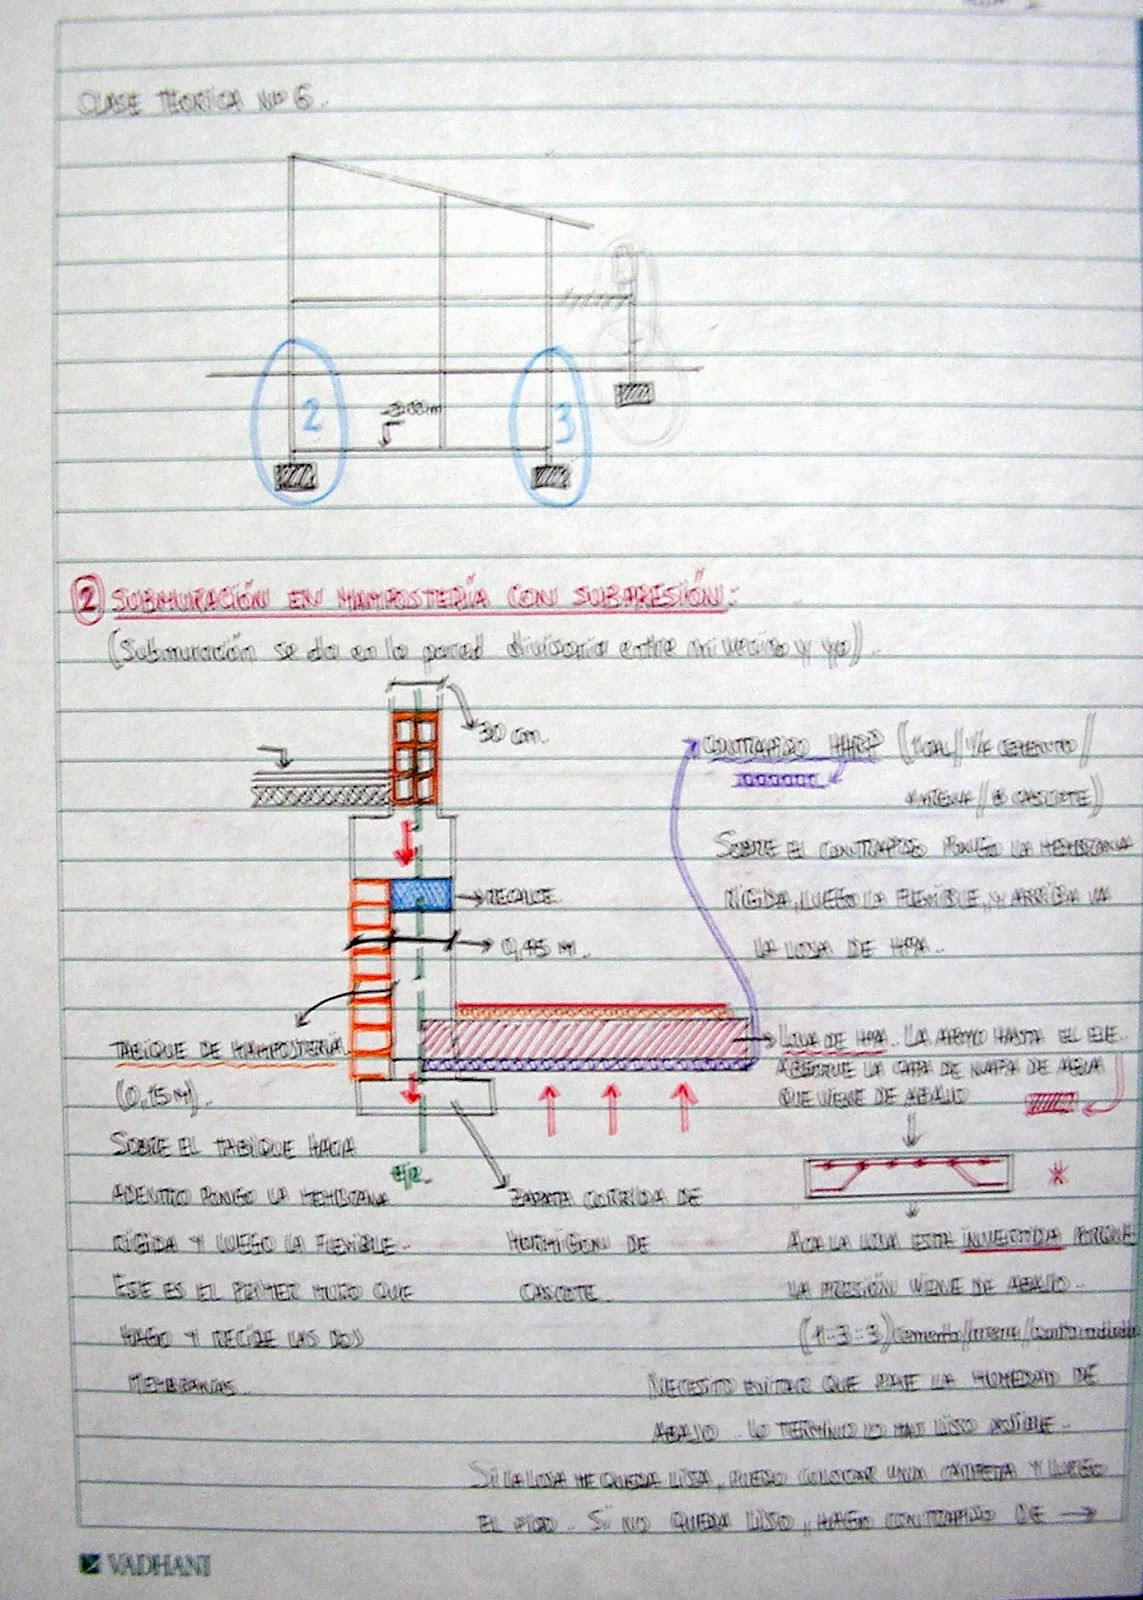 CLASE TEORICA Nº 6.
2
3
② SUBMURACIÓN EN MAMPOSTERÍA CON SUBPRESIÓN:
(Submuración se da en la pared divisoria entre mi vecino y yo).
30 cm.
RECALCE
0,45 M.
TABIQUE DE MAMPOSTERIA
(0,15 M).
SOBRE EL TABIQUE HACIA
ADENTRO PONGO LA MEMBRANA
RÍGIDA Y LUEGO LA FLEXIBLE.
ESE ES EL PRIMER MURO QUE
HAGO Y RECIBE LAS DOS
MEMBRANAS.
EJE.
ZAPATA CORRIDA DE
HORMIGON DE
CASCOTE.
CONTRAPISO (1 CAL // 1/4 CEMENTO //
ARENA // 8 CASCOTE)
SOBRE EL CONTRAPISO PONGO LA MEMBRANA
RIGIDA, LUEGO LA FLEXIBLE, Y ARRIBA VA
LA LOSA DE HºAº.
LOSA DE HºAº. LA APOYO HASTA EL EJE.
ABSORVE LA CAPA DE NAPA DE AGUA
QUE VIENE DE ABAJO
ACA LA LOSA ESTA INVERTIDA PORQUE
LA PRESIÓN VIENE DE ABAJO.
(1:3:3) cemento//arena//canto rodado
NECESITO EVITAR QUE PASE LA HUMEDAD DE
ABAJO. LO TERMINO LO MAS LISO POSIBLE.
SI LA LOSA ME QUEDA LISA, PUEDO COLOCAR UNA CARPETA Y LUEGO
EL PISO. SI NO QUEDA LISO, HAGO CONTRAPISO DE →
VADHANI